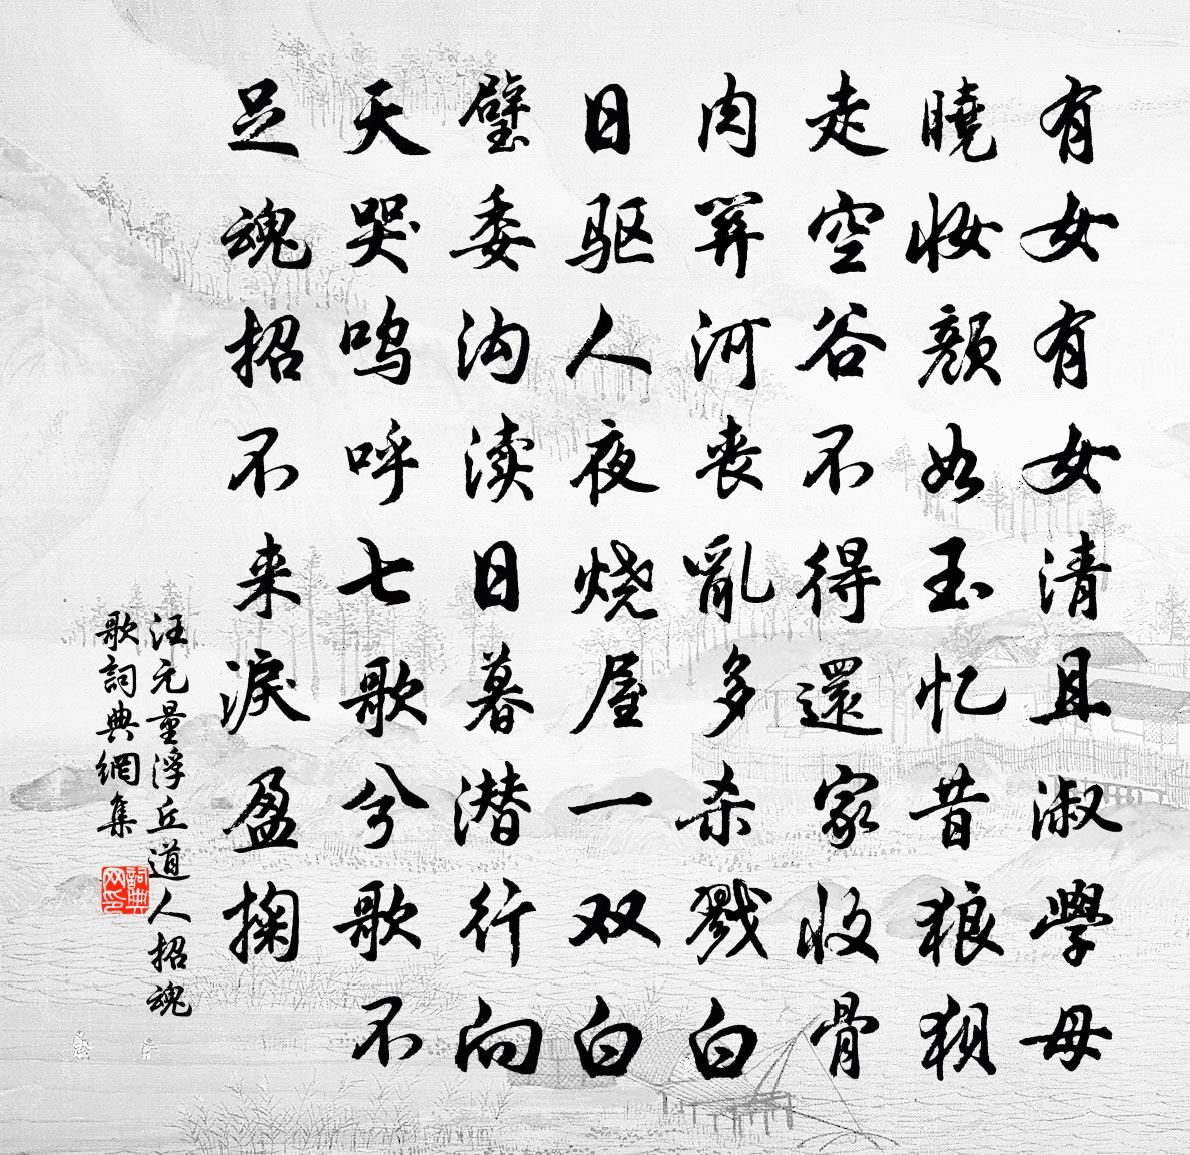 有女有女清且淑學母
曉妝顏如玉忆昔狼狽
走空谷不得還家收骨
肉關河喪亂多杀戮白
日驱人夜烧屋一双白
璧委沟渎日暮潜行向
天哭呜呼七歌兮歌不
足魂招不来淚盈掬
汪元量浮丘道人招魂
歌詞典網集
詞典网印